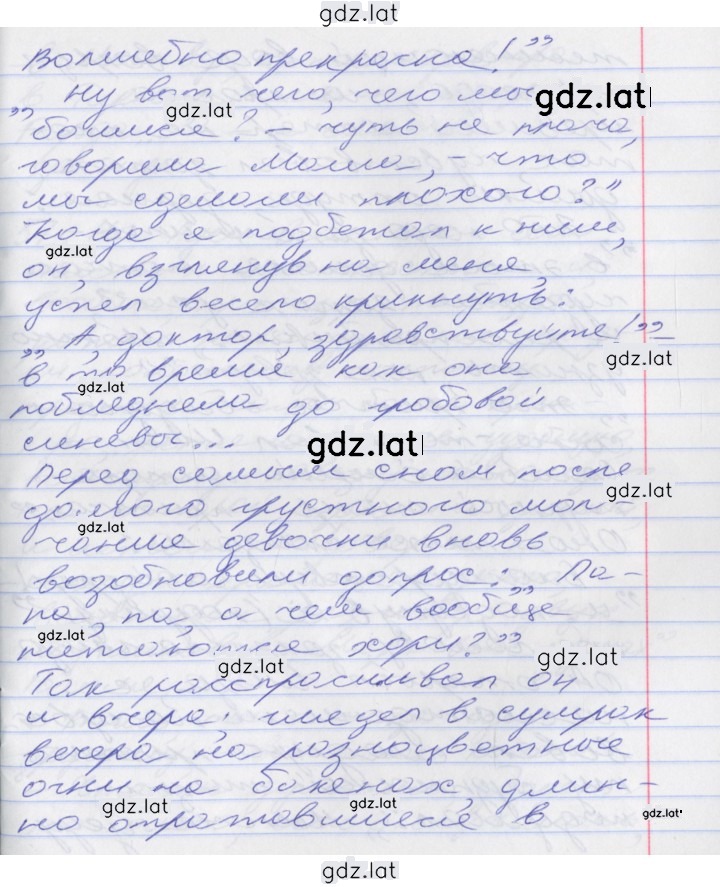 gdz.lat
волшебно прекрасна!”
Ну вот чего, чего мы
gdz.lat
gdz.lat
„боимся? – чуть не плача,
говорила Маша, – что
мы сделали плохого?”
Когда я подбежал к ним,
gdz.lat
он, взглянув на меня,
успел весело крикнуть:
„А, доктор, здравствуйте!” –
gdz.lat
в то время как она
gdz.lat
побледнела до гробовой
синевы...
gdz.lat
Перед самым сном после
gdz.lat
долгого грустного мол-
gdz.lat
чания девочки вновь
возобновили допрос: „Па-
па, па, а чем вообще
gdz.lat
питаются хори?”
gdz.lat
gdz.lat
Так расспрашивал он
и вчера; глядел в сумрак
вечера на разноцветные
огни на бакенах, длин-
gdz.lat
gdz.lat
gdz.lat
но отражавшиеся в
gdz.lat